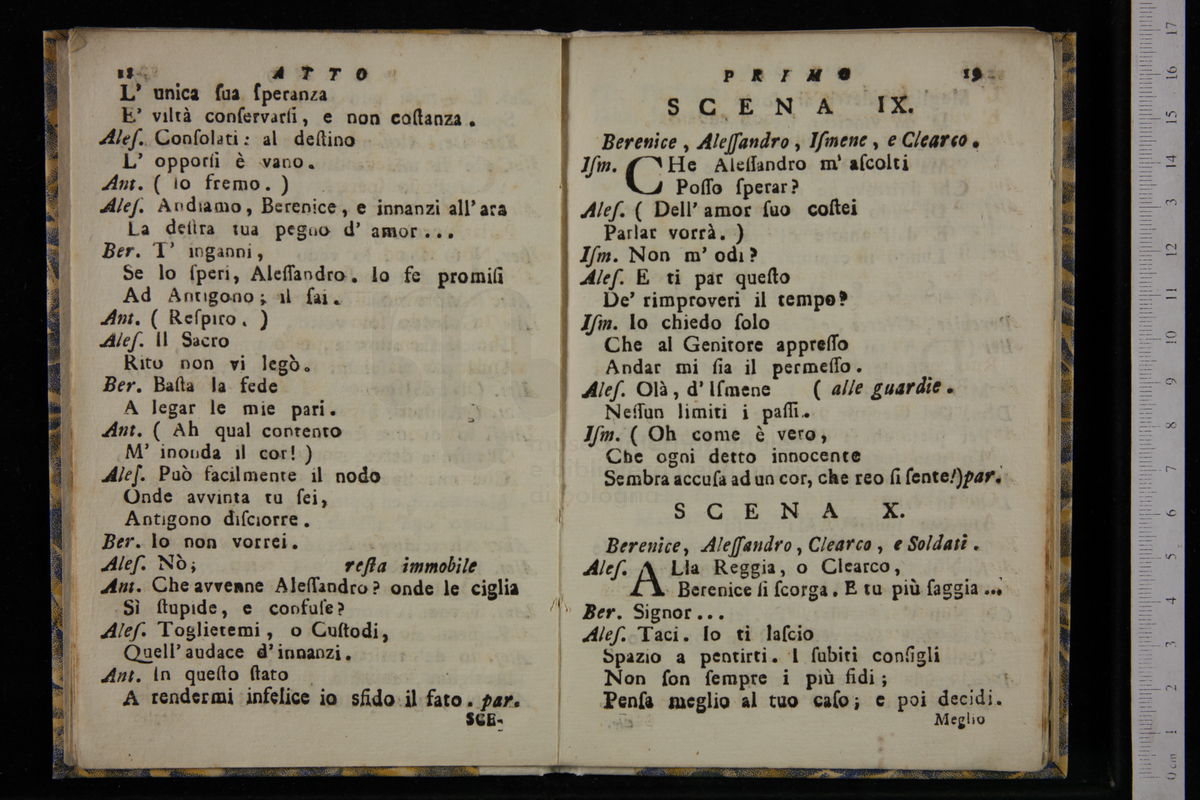 18 ATTO
L' unica ſua ſperanza
E' viltà conſervarſi, e non coſtanza.
Aleſ. Conſolati: al deſtino
L' opporſi è vano.
Ant. ( Io fremo. )
Aleſ. Andiamo, Berenice, e innanzi all' ara
La deſtra tua pegno d' amor...
Ber. T' inganni,
Se lo ſperi, Aleſſandro. Io fe promiſi
Ad Antigono; il ſai.
Ant. ( Reſpiro. )
Aleſ. Il Sacro
Rito non vi legò.
Ber. Baſta la fede
A legar le mie pari.
Ant. ( Ah qual contento
M' inonda il cor! )
Aleſ. Può facilmente il nodo
Onde avvinta tu ſei,
Antigono diſciorre.
Ber. Io non vorrei.
Aleſ. Nò; reſta immobile
Ant. Che avvenne Aleſſandro? onde le ciglia
Sì ſtupide, e confuſe?
Aleſ. Toglietemi, o Cuſtodi,
Quell' audace d' innanzi.
Ant. In queſto ſtato
A rendermi infelice io sfido il fato. par.
SCE-
PRIMO 19
SCENA IX.
Berenice, Aleſſandro, Iſmene, e Clearco.
Iſm. CHe Aleſſandro m' aſcolti
Poſſo ſperar?
Aleſ. ( Dell' amor ſuo coſtei
Parlar vorrà. )
Iſm. Non m' odi?
Aleſ. E ti par queſto
De' rimproveri il tempo?
Iſm. Io chiedo ſolo
Che al Genitore appreſſo
Andar mi ſia il permeſſo.
Aleſ. Olà, d' Iſmene ( alle guardie.
Neſſun limiti i paſſi.
Iſm. ( Oh come è vero,
Che ogni detto innocente
Sembra accuſa ad un cor, che reo ſi ſente!)par.
SCENA X.
Berenice, Aleſſandro, Clearco, e Soldati.
Aleſ. ALla Reggia, o Clearco,
Berenice ſi ſcorga. E tu più ſaggia...
Ber. Signor...
Aleſ. Taci. Io ti laſcio
Spazio a pentirti. I ſubiti conſigli
Non ſon ſempre i più fidi;
Penſa meglio al tuo caſo; e poi decidi.
Meglio